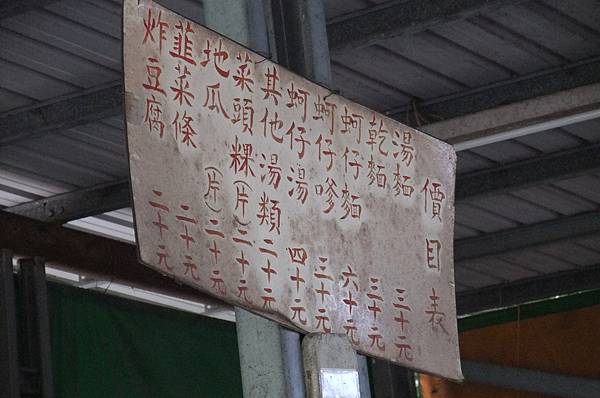 價目表
湯麵 三十元
乾麵 三十元
蚵仔麵 六十元
蚵仔嗲 三十元
蚵仔湯 四十元
其他湯類 二十元
菜頭粿(片) 二十元
地瓜(片) 二十元
韮菜條 二十元
炸豆腐 二十元